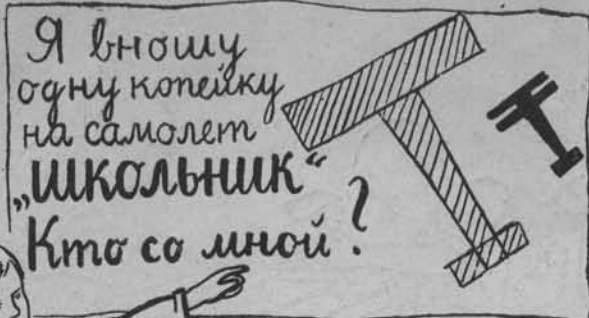 Я вношу
одну копейку
на самолет
„ШКОЛЬНИК“
Кто со мной?